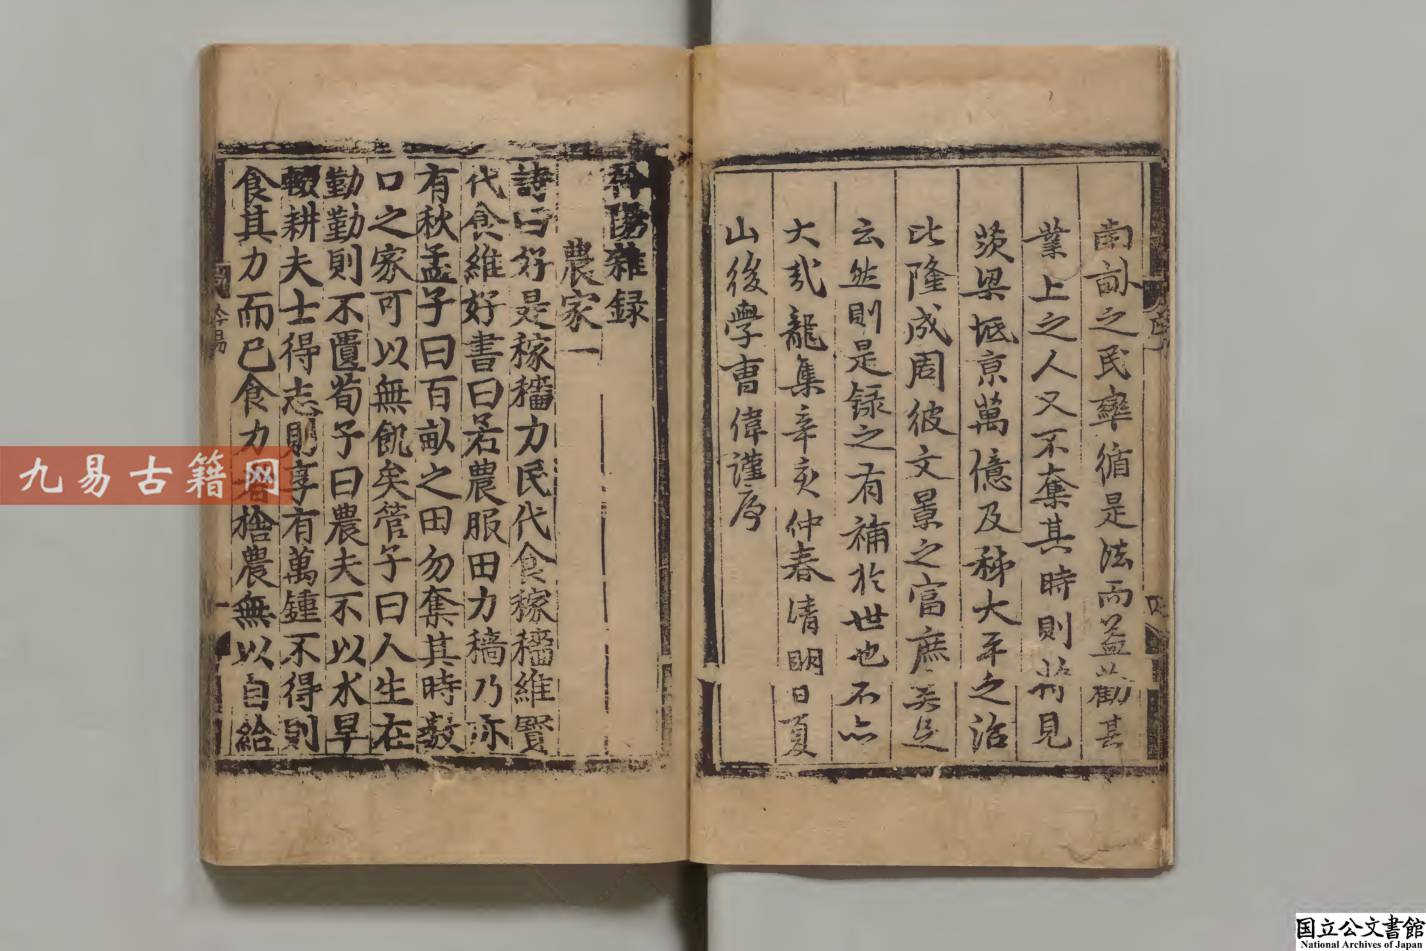 南畝之民率循是法而益勸其
業上之人又不奪其時則將見
茨梁坻京萬億及秭大平之治
比隆成周彼文景之富庶不足
云然則是録之有補於世也不亦
大哉龍集辛亥仲春清明日夏
山後學曺偉謹序
衿陽雜録
農家一
詩曰好是稼穡力民代食稼穡維寶
代食維好書曰若農服田力穡乃亦
有秋孟子曰百畝之田勿奪其時數
口之家可以無飢矣管子曰人生在
勤勤則不匱荀子曰農夫不以水旱
輟耕夫士得志則享有萬鍾不得則
食其力而已食力者捨農無以自給
衿陽
一
九易古籍网
国立公文書館
National Archives of Japan